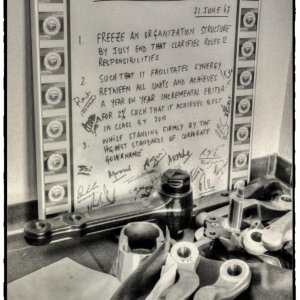 21 JUNE 07
1. FREEZE AN ORGANIZATION STRUCTURE
BY JULY END THAT CLARIFIES ROLES &
RESPONSIBILITIES
2. SUCH THAT IT FACILITATES SYNERGY
BETWEEN ALL UNITS AND ACHIEVES
A YEAR ON YEAR INCREMENTAL EBITDA
FOR 2% SUCH THAT IT ACHIEVES BEST
IN CLASS BY 2010
3. WHILE STANDING FIRMLY BY THE
HIGHEST STANDARDS OF CORPORATE
GOVERNANCE